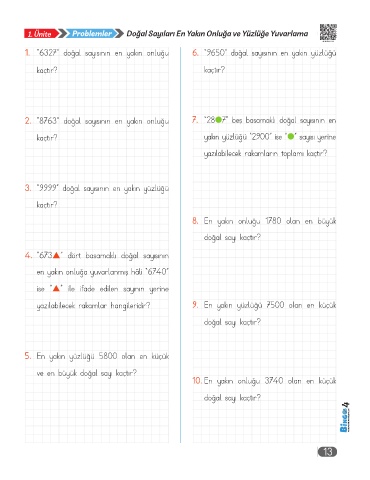 1. Ünite Problemler Doğal Sayıları En Yakın Onluğa ve Yüzlüğe Yuvarlama
1. "6327" doğal sayısının en yakın onluğu
kaçtır?
2. "8763" doğal sayısının en yakın onluğu
kaçtır?
3. "9999" doğal sayısının en yakın yüzlüğü
kaçtır?
4. "673▲" dört basamaklı doğal sayısının
en yakın onluğa yuvarlanmış hâli "6740"
ise "▲" ile ifade edilen sayının yerine
yazılabilecek rakamlar hangileridir?
5. En yakın yüzlüğü 5800 olan en küçük
ve en büyük doğal sayı kaçtır?
6. "9650" doğal sayısının en yakın yüzlüğü
kaçtır?
7. "28●7" beş basamaklı doğal sayısının en
yakın yüzlüğü "2900" ise "●" sayısı yerine
yazılabilecek rakamların toplamı kaçtır?
8. En yakın onluğu 1780 olan en büyük
doğal sayı kaçtır?
9. En yakın yüzlüğü 7500 olan en küçük
doğal sayı kaçtır?
10. En yakın onluğu 3740 olan en küçük
doğal sayı kaçtır?
Bingo 4
13